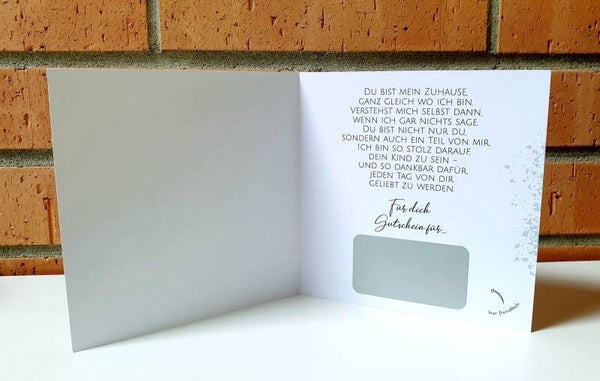 DU BIST MEIN ZUHAUSE,
GANZ GLEICH WO ICH BIN.
VERSTEHST MICH SELBST DANN,
WENN ICH GAR NICHTS SAGE.
DU BIST NICHT NUR DU,
SONDERN AUCH EIN TEIL VON MIR.
ICH BIN SO STOLZ DARAUF,
DEIN KIND ZU SEIN –
UND SO DANKBAR DAFÜR,
JEDEN TAG VON DIR
GELIEBT ZU WERDEN.
Für dich
Gutschein für...